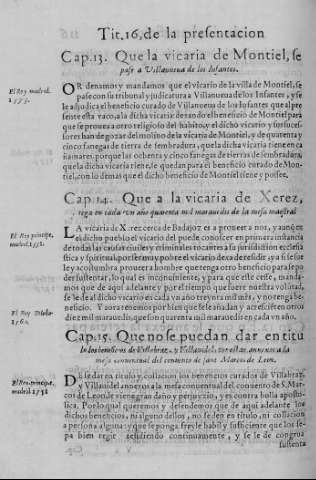 Tit. 16. de la presentacion
Cap. 13. Que la vicaria de Montiel, se
pase a Villanueua de los Infantes.
El Rey madrid.
1573.
ORdenamos y mandamos que el vicario de la villa de Montiel, se
pase con su tribunal y judicatura a Villanueua de los Infantes, y se
le adjudica el beneficio curado de Villanueua de los Infantes que al pre
sente esta vaco, a la dicha vicaria
que se prouea a otro religioso del habito, y el dicho vicario y sus suceso
res han de gozar del molino de la vicaria de Montiel, y de quarenta y
cinco fanegas de tierra de sembradura, que la dicha vicaria tiene en ça
mares, porque las ochenta y cinco fanegas de tierras de sembra
dura, que la dicha vicaria tiene, se quedan para el beneficio curado de Mon
tiel, con lo demas que el dicho Montiel tiene y posee.
Cap. 14. Que a la vicaria de Xerez,
rega en cada vn año quarenta mil marauedis de la mesa maestral
El Rey principe,
madrid. 1551.
LA vicaria de Xerez cerca de Badajoz es a proueer a nos, y aunque
el dicho pueblo el vicario del puede conocer en primera instancia
de todas las causas ciuiles y criminales tocantes a su jurisdiction ecclesia
stica y spiritual, por ser muy pobre el vicario dexa de residir, y a si se de
ue y acostumbra proueer a hombre que tenga otro beneficio para se po
der sustentar, lo qual es inconueniente, y para que este cese, manda
mos que de aqui adelante y por el tiempo que fuere nuestra voluntad,
se le de al dicho vicario en cada vn año treynta mil mrs, y no tenga be
neficio. Y aora tenemos por bien que se le añadan y acrecienten otros
diez mil marauedis, que son quarenta mil marauedis en cada vn año.
El Rey Toledo.
1560.
Cap. 15. Que no se puedan dar en titu
lo los beneficios de Villabraz, y Villauidel, por estar annexos a la
mesa conuentual del conuento de sant Marcos de Leon.
El Rey principe,
madrid 1551
DE se dar en titulo, y collacion los beneficios curados de Villabraz,
y Villauidel annexos a la mesa conuentual del conuento de S. Mar
cos de Leon, le viene gran daño y perjuyzio, y es contra bolla aposto
lica. Por lo qual queremos y defendemos que de aqui adelante los
dichos beneficios, ni alguno dellos, no se den en titulo, ni collacion
a persona alguna: y se ponga freyle habil y sufficiente que los se
pa bien regir residiendo continuamente, y se le de congrua
sustenta